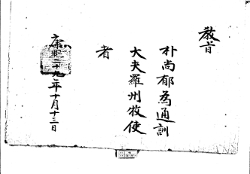 敎旨
朴尙郁爲通訓
大夫羅州牧使
者
康熙十九年十月十三日